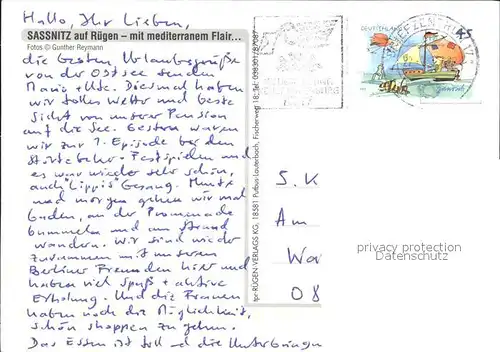 Hallo, Ihr Lieben,
SASSNITZ auf Rügen – mit mediterranem Flair...
Fotos © Gunther Reymann
die besten Urlaubsgrüße
von der Ostsee senden
Mario + Ute. Diesmal haben
wir tolles Wetter und beste
Sicht von unserer Pension
auf die See. Gestern waren
wir zur 1. Episode bei den
Störtebeker-Festspielen und
es war wieder sehr schön,
auch "Lippis" Gesang. Heute
und morgen gehen wir mal
baden, an der Promenade
bummeln und am Strand
wandern. Wir sind wieder
zusammen mit unseren
Berliner Freunden hier und
haben viel Spaß + aktive
Erholung. Und die Frauen
haben noch die Möglichkeit,
schön shoppen zu gehen.
Das Essen ist toll + die Unterbringung
tpr-RÜGEN-VERLAGS KG, 18581 Putbus-Lauterbach, Fischerweg 18, Tel. 038301/87087
DEUTSCHLAND
45
BRIEFZENTRUM 17
S. K
Am
Wa
08
privacy protection
Datenschutz